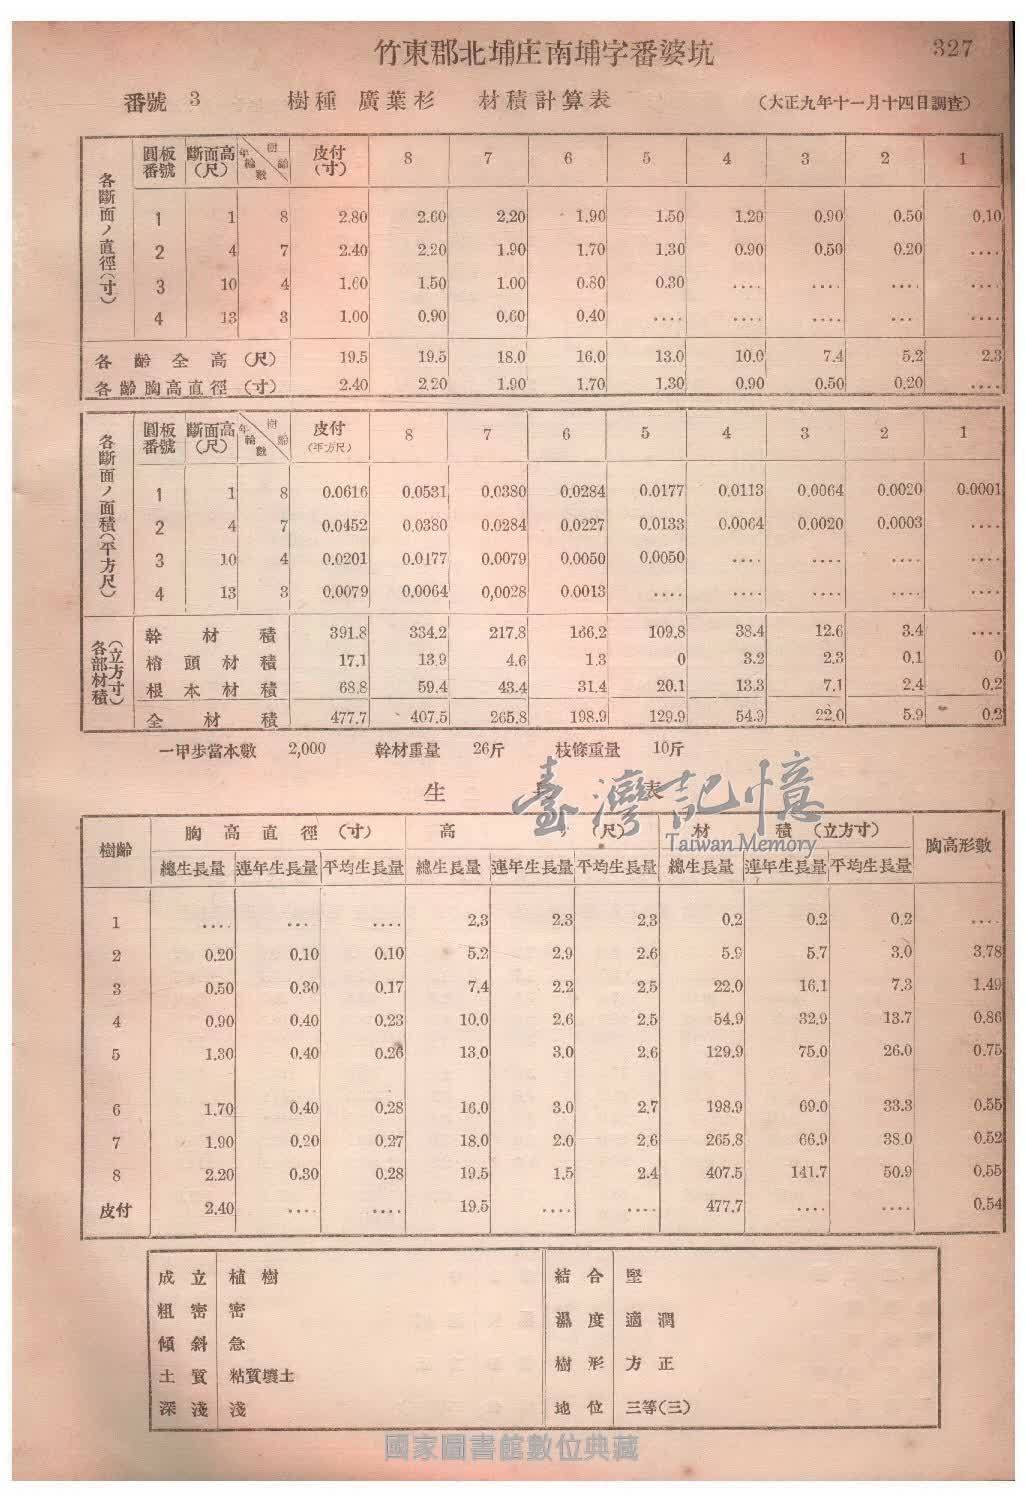 竹東郡北埔庄南埔字番婆坑 327
番號 3 樹種 廣葉杉 材積計算表 (大正九年十一月十四日調查)
各斷面ノ直徑(寸)
圓板番號 斷面高(尺) 年輪數 樹齡 皮付(寸) 8 7 6 5 4 3 2 1
1 1 8 2.80 2.60 2.20 1.90 1.50 1.20 0.90 0.50 0.10
2 4 7 2.40 2.20 1.90 1.70 1.30 0.90 0.50 0.20 ....
3 10 4 1.60 1.50 1.00 0.80 0.30 .... .... .... ....
4 13 3 1.00 0.90 0.60 0.40 .... .... .... ... ....
各齡全高(尺) 19.5 19.5 18.0 16.0 13.0 10.0 7.4 5.2 2.3
各齡胸高直徑(寸) 2.40 2.20 1.90 1.70 1.30 0.90 0.50 0.20 ....
各斷面ノ面積(平方尺)
圓板番號 斷面高(尺) 年輪數 樹齡 皮付(平方尺) 8 7 6 5 4 3 2 1
1 1 8 0.0616 0.0531 0.0380 0.0284 0.0177 0.0113 0.0064 0.0020 0.0001
2 4 7 0.0452 0.0380 0.0284 0.0227 0.0133 0.0064 0.0020 0.0003 ....
3 10 4 0.0201 0.0177 0.0079 0.0050 0.0050 .... .... .... ....
4 13 3 0.0079 0.0064 0,0028 0.0013 .... .... .... .... ....
各部材積(立方寸)
幹材積 391.8 334.2 217.8 166.2 109.8 38.4 12.6 3.4 ....
梢頭材積 17.1 13.9 4.6 1.3 0 3.2 2.3 0.1 0
根本材積 68.8 59.4 43.4 31.4 20.1 13.3 7.1 2.4 0.2
全材積 477.7 407.5 265.8 198.9 129.9 54.9 22.0 5.9 0.2
一甲步當本數 2,000 幹材重量 26斤 枝條重量 10斤
生長表
臺灣記憶
Taiwan Memory
樹齡 胸高直徑(寸) 高(尺) 材積(立方寸) 胸高形數
總生長量 連年生長量 平均生長量 總生長量 連年生長量 平均生長量 總生長量 連年生長量 平均生長量
1 .... ... .... 2.3 2.3 2.3 0.2 0.2 0.2 ....
2 0.20 0.10 0.10 5.2 2.9 2.6 5.9 5.7 3.0 3.78
3 0.50 0.30 0.17 7.4 2.2 2.5 22.0 16.1 7.3 1.49
4 0.90 0.40 0.23 10.0 2.6 2.5 54.9 32.9 13.7 0.86
5 1.30 0.40 0.26 13.0 3.0 2.6 129.9 75.0 26.0 0.75
6 1.70 0.40 0.28 16.0 3.0 2.7 198.9 69.0 33.3 0.55
7 1.90 0.20 0.27 18.0 2.0 2.6 265.8 66.9 38.0 0.52
8 2.20 0.30 0.28 19.5 1.5 2.4 407.5 141.7 50.9 0.55
皮付 2.40 .... .... 19.5 .... .... 477.7 .... .... 0.54
成立 植樹
粗密 密
傾斜 急
土質 粘質壤土
深淺 淺
結合 堅
濕度 適潤
樹形 方正
地位 三等(三)
國家圖書館數位典藏